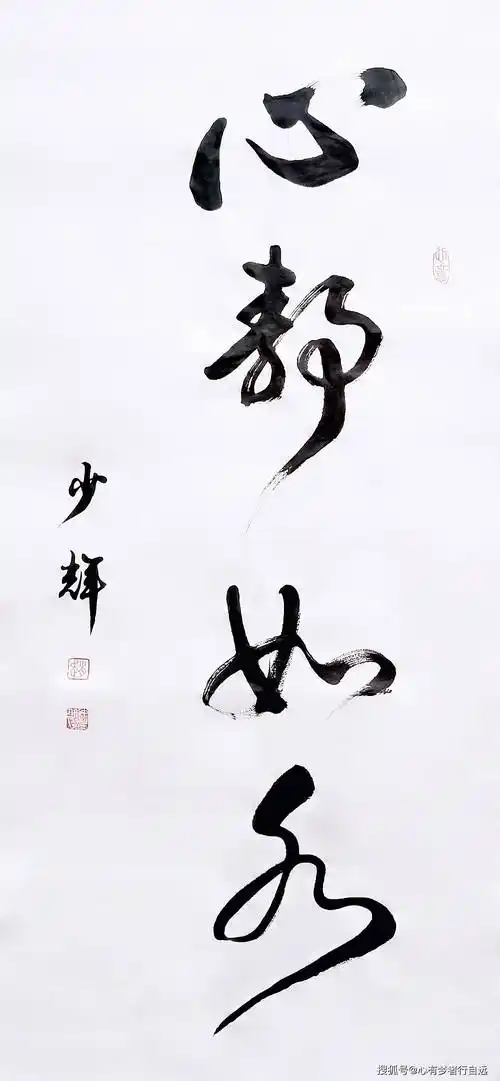 心静如水
少辉
搜狐号@心有梦者行自远